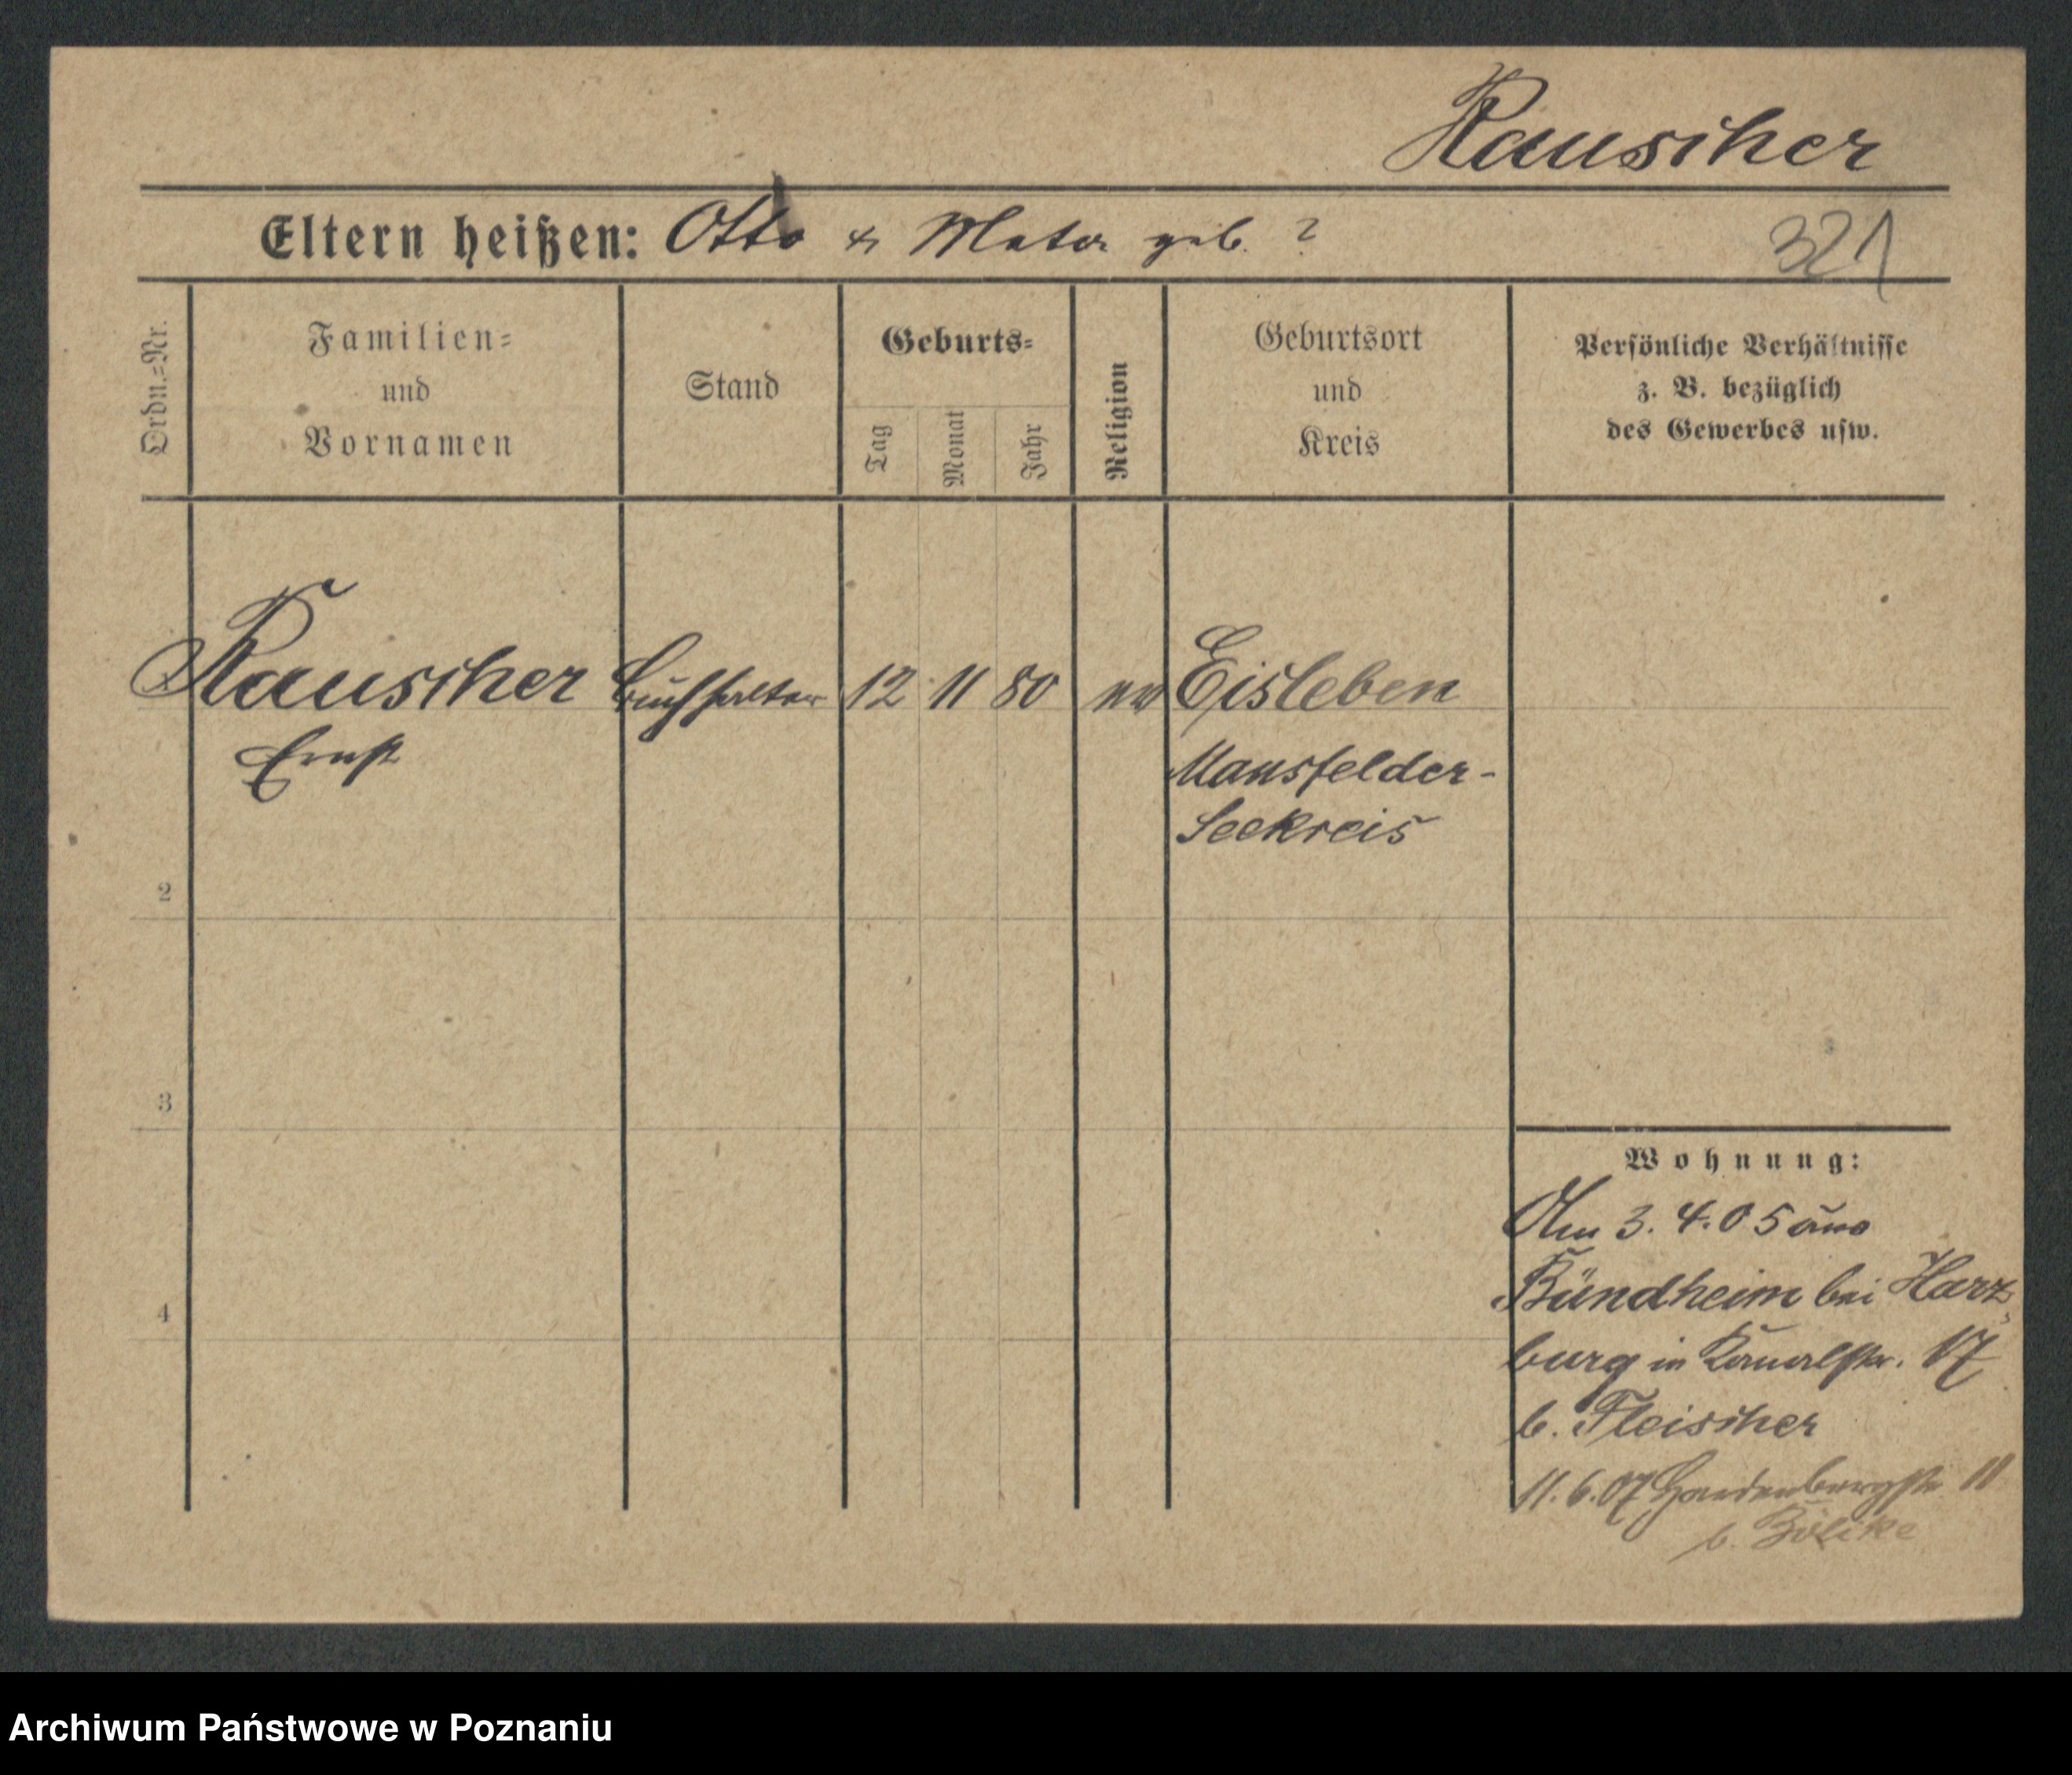 Rauscher
Eltern heißen: Otto & Meta geb. ?
321
Ordn.=Nr.
Familien=
und
Vornamen
Stand
Geburts=
Tag
Monat
Jahr
Religion
Geburtsort
und
Kreis
Persönliche Verhältnisse
z. B. bezüglich
des Gewerbes usw.
Rauscher Buchhalter 12 11 80 ev Eisleben
Ernst
Mansfelder-
Seekreis
2
3
4
Wohnung:
Am 3. 4. 05 aus
Bündheim bei Harz
burg in Kanalstr. 17
b. Fleischer
11. 6. 07 Hardenbergstr. 11
b.
Archiwum Państwowe w Poznaniu